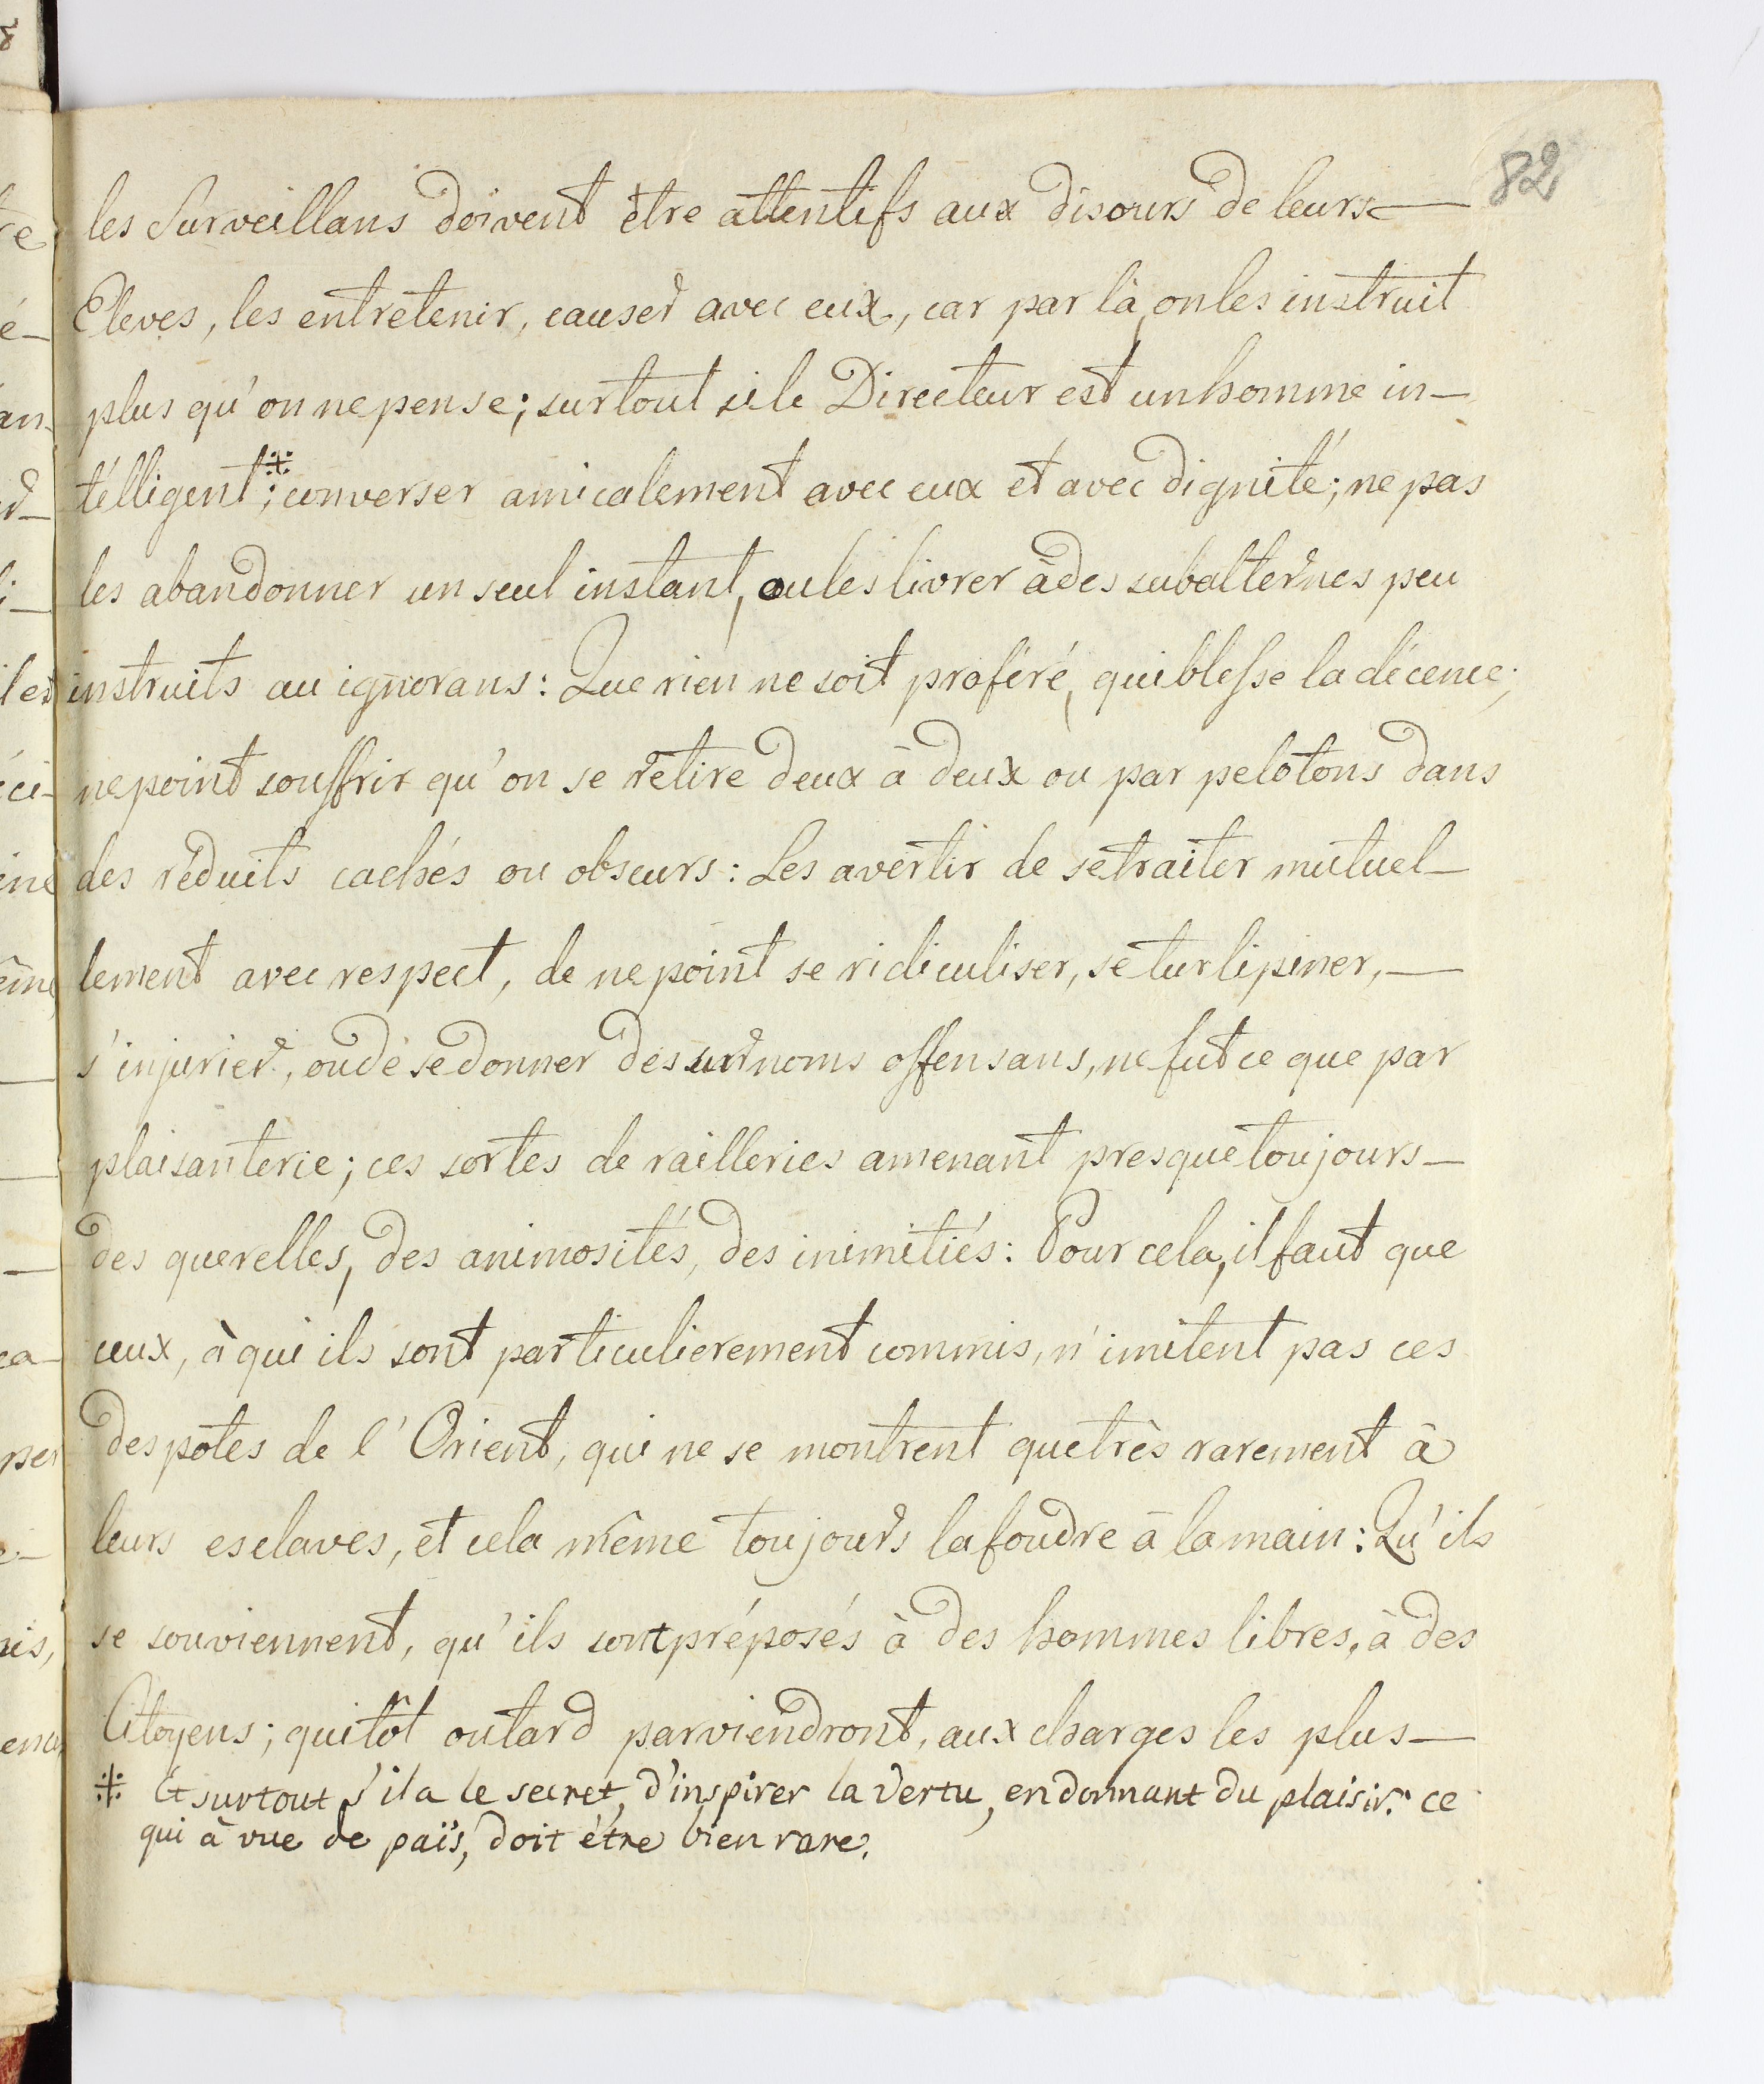 82
les Surveillans doivent être attentifs aux disours de leurs—
Eleves, les entretenir, causer avec eux, car par là, on les instruit
plus qu'on ne pense; surtout si le Directeur est un homme in—
télligent※; converser amicalement avec eux et avec dignité; ne pas
les abandonner un seul instant, ou les livrer à des subalternes peu
instruits au ignorans: Que rien ne soit proféré, qui blesse la décence;
ne point souffrir qu'on se retire deux à deux ou par pelotons dans
des réduits cachés ou obscurs: Les avertir de se traiter mutuel—
lement avec respect, de ne point se ridiculiser, se turlipiner,—
s'injurier, ou de se donner des surnoms offensans, ne fut ce que par
plaisanterie; ces sortes de railleries amenant presque toujours—
des querelles, des animosités, des inimitiés: Pour cela, il faut que
ceux, à qui ils sont particulierement commis, n'imitent pas ces
despotes de l'Orient, qui ne se montrent que très rarement à
leurs esclaves, et cela même toujours la foudre à la main: Qu'ils
se souviennent, qu'ils sont préposés à des hommes libres, à des
Citoyens; qui tôt ou tard parviendront, aux charges les plus—
※ Et surtout s'il a le secret, d'inspirer la vertu, en donnant du plaisir: ce
qui à vue de païs, doit être bien rare.